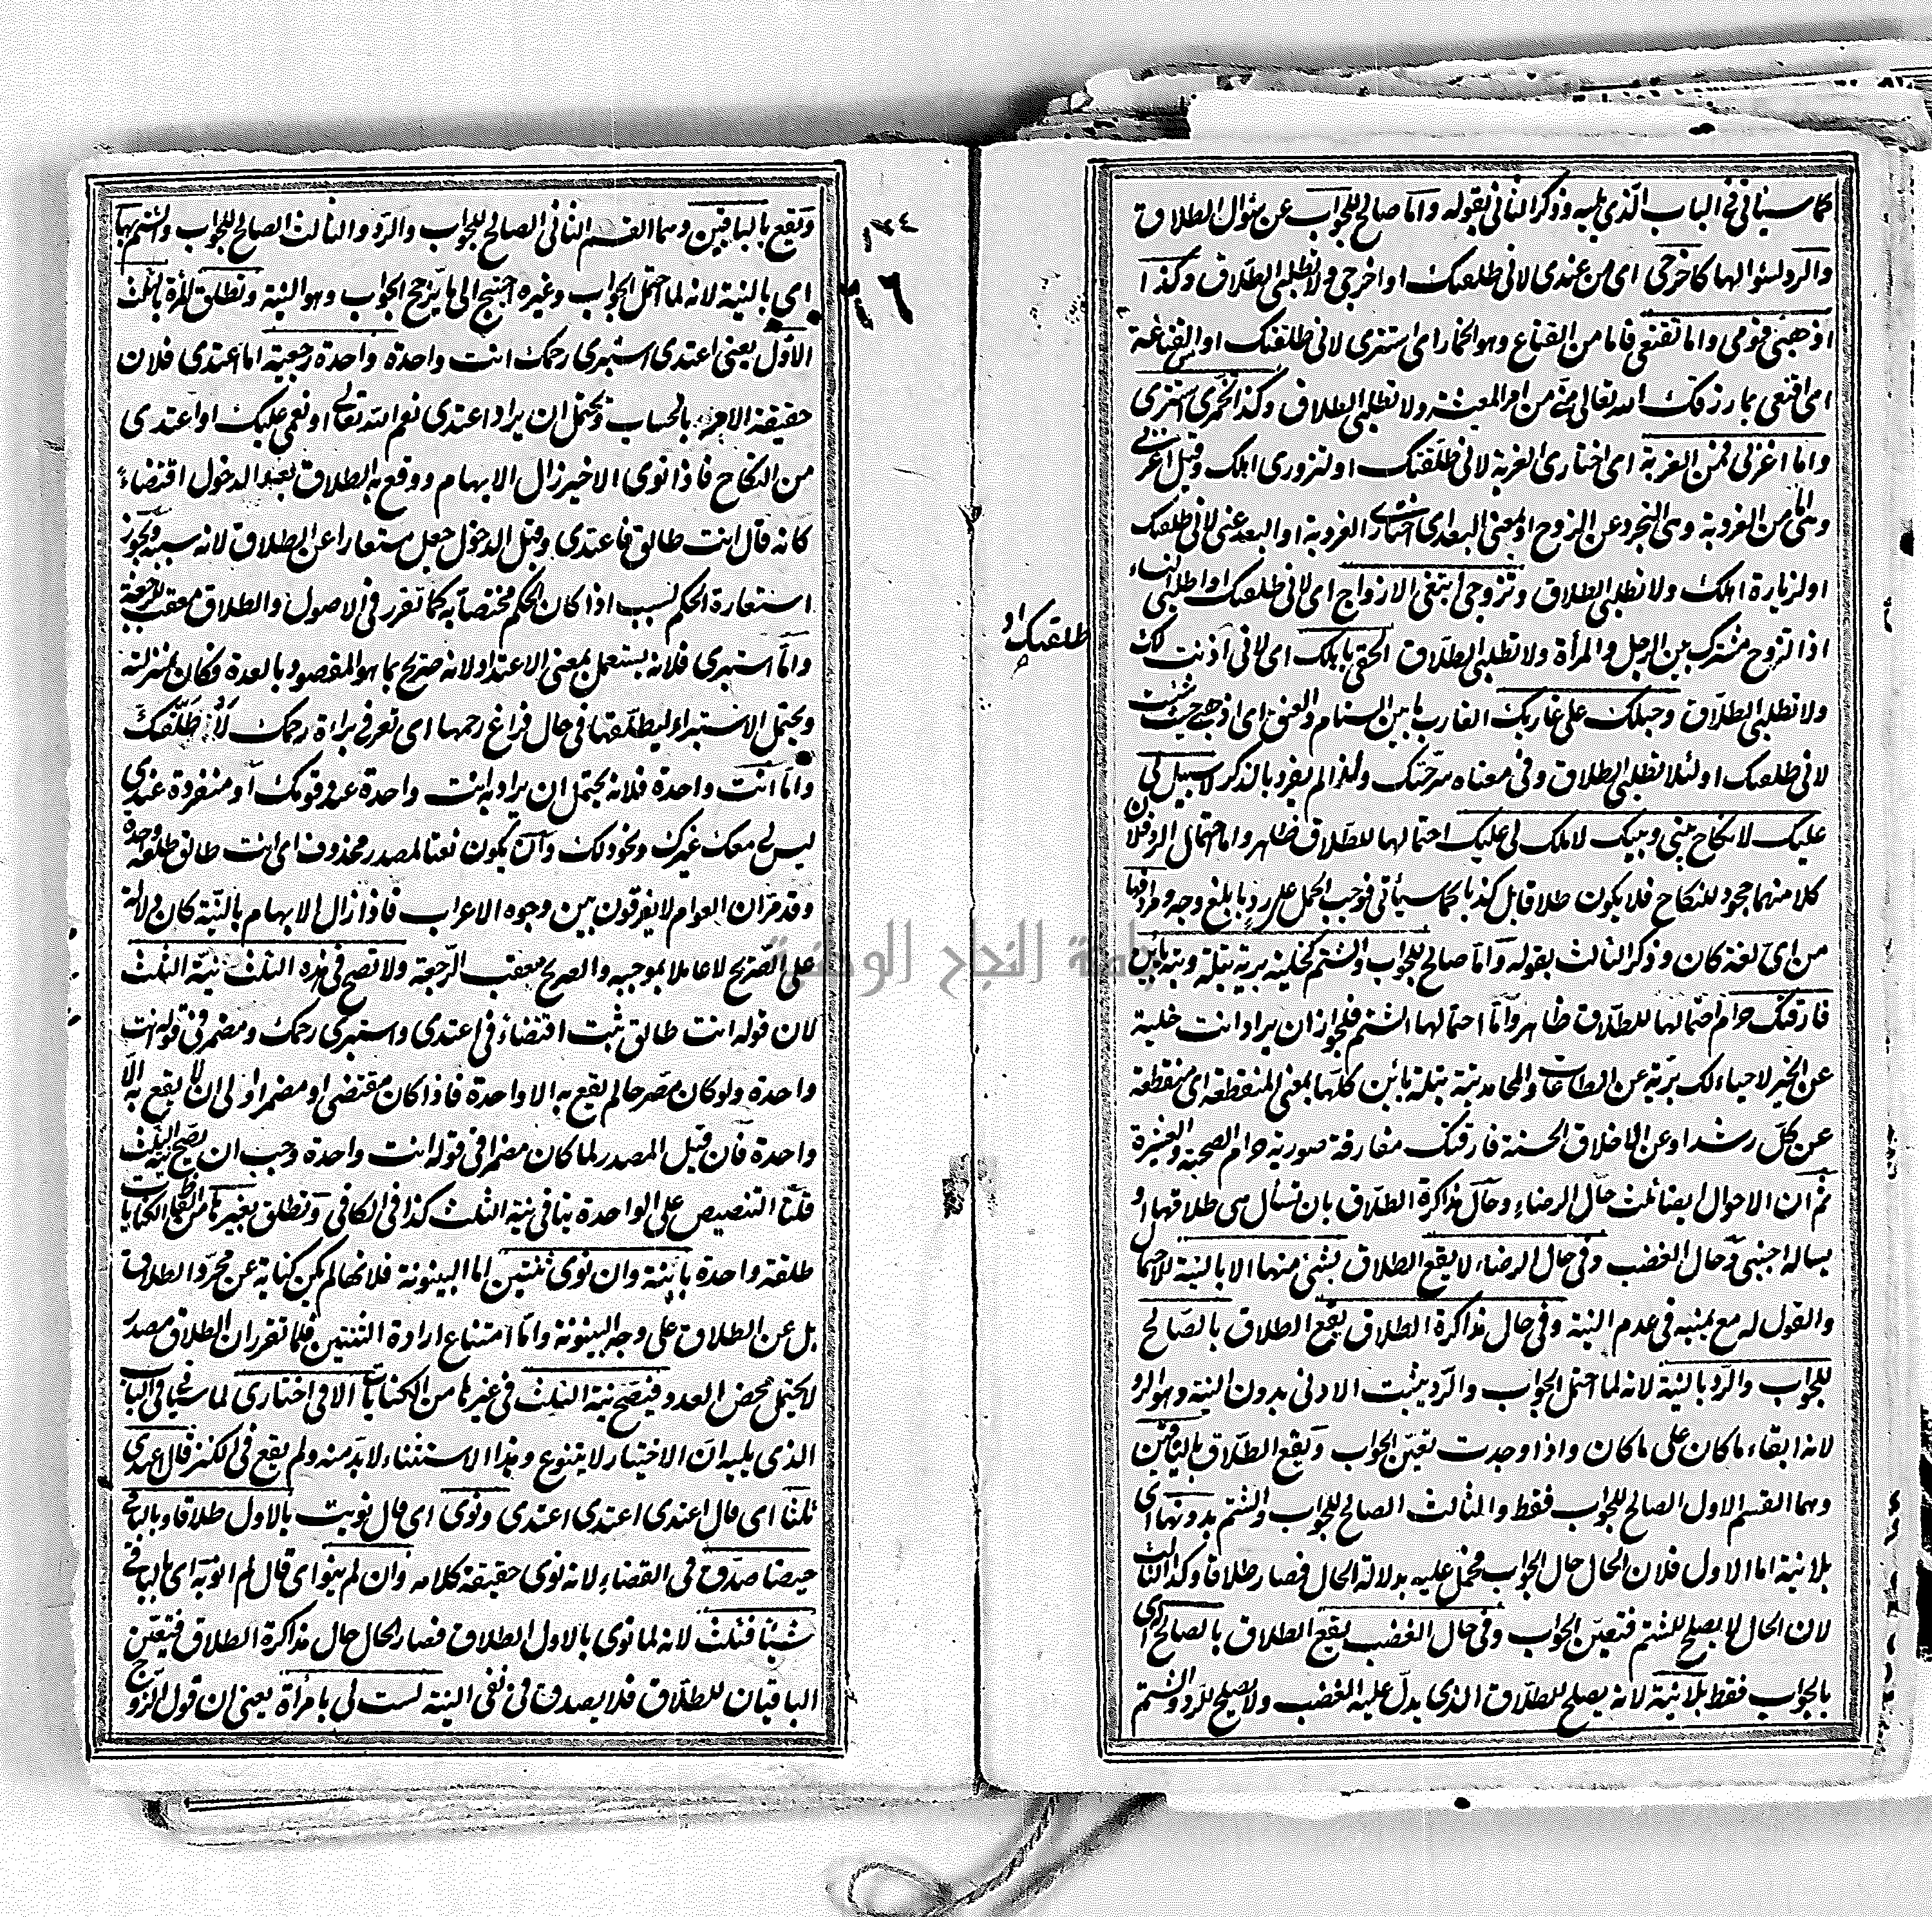 كما سيأتي في الباب الذي يليه وذكر الثاني بقوله واما صالح للجواب عن سؤال الطلاق
والرد لسؤالها كاخرجي اي من عندي لاني طلقتك او اخرجي ولا تطلبي الطلاق وكذا
اذهبي قومي واما تقنعي فاما من القناع وهو الخمار اي استتري لاني طلقتك او من القناعة
اي اقنعي بما رزقك الله تعالى مني من امر المعيشة ولا تطلبي الطلاق وكذا تخمري استتري
واما اغربي فمن الغربة اي اختاري الغربة لاني طلقتك او لتزوري اهلك وقيل اعزبي
وهي اما من العزوبة وهي التجرد عن الزوج او بمعنى البعد اي اختاري العزوبة او البعد عني لاني طلقتك
او لزيارة اهلك ولا تطلبي الطلاق وتزوجي ابتغي الازواج اي لاني طلقتك او اطلبي النساء
اذ التزوج مشترك بين الرجل والمرأة ولا تطلبي الطلاق الحقي باهلك اي لاني اذنت لك
طلقتك او
ولا تطلبي الطلاق وحبلك على غاربك الغارب ما بين السنام والعنق اي اذهبي حيث شئت
لاني طلقتك او لئلا تطلبي الطلاق وفي معناه سرحتك ولهذا لم يفرد بالذكر لا سبيل لي
عليك لا نكاح بيني وبينك لا ملك لي عليك احتمالها للطلاق ظاهر واما احتمال الرد فلان
كلا منهما جحود للنكاح فلا يكون طلاقا بل كذبا كما سيأتي فوجب الحمل على رد بابلغ وجه ومرادفها
من اي لغة كان وذكر الثالث بقوله واما صالح للجواب والشتم كخلية برية بتلة وبتة باين
فارقتك حرام احتمالها للطلاق ظاهر واما احتمالها الشتم فلجواز ان يراد انت خلية
عن الخير لا حياء لك برية عن الطاعات والمحامد بتة بتلة بائن كلها بمعنى المنقطعة اي منقطعة
عن كل رشد او عن الاخلاق الحسنة فارقتك مفارقة صورية حرام الصحبة والعشرة
ثم ان الاحوال ايضا ثلث حال الرضاء وحال مذاكرة الطلاق بان تسأل هي طلاقها او
يساله اجنبي وحال الغضب وفي حال الرضاء لا يقع الطلاق بشئ منها الا بالنية للاحتمال
والقول له مع يمينه في عدم النية وفي حال مذاكرة الطلاق يقع الطلاق بالصالح
للجواب والرد بالنية لانه لما احتمل الجواب والرد يثبت الادنى بدون النية وهو الرد
لانه ابقاء ما كان على ما كان واذا وجدت تعين الجواب ويقع الطلاق بالباقيين
وهما القسم الاول الصالح للجواب فقط والثالث الصالح للجواب والشتم بدونها اي
بلا نية اما الاول فلان الحال حال الجواب فيحمل عليه بدلالة الحال فصار طلاقا وكذا الثالث
لان الحال لا يصلح للشتم فتعين الجواب وفي حال الغضب يقع الطلاق بالصالح اي
بالجواب فقط بلا نية لانه يصلح للطلاق الذي يدل عليه الغضب ولا يصلح للرد والشتم
١٢٤
١٠٦
ويقع بالباقيين وهما القسم الثاني الصالح للجواب والرد والثالث الصالح للجواب والشتم بها
اي بالنية لانه لما احتمل الجواب وغيره احتيج الى ما يرجح الجواب وهو النية وتطلق المرة بالثلث
الاول يعني اعتدي استبري رحمك انت واحدة واحدة رجعية اما اعتدي فلان
حقيقة الامر بالحساب ويحتمل ان يراد اعتدي نعم الله تعالى او نعمي عليك او اعتدي
من النكاح فاذا نوى الاخير زال الابهام ووقع به الطلاق بعد الدخول اقتضاء
كانه قال انت طالق فاعتدي وقبل الدخول جعل مستعارا عن الطلاق لانه سببه ويجوز
استعارة الحكم لسبب اذا كان الحكم مختصا به كما تقرر في الاصول والطلاق معقب للرجعة
واما استبري فلانه يستعمل بمعنى الاعتداد لانه صريح بما هو المقصود بالعدة فكان بمنزلته
ويحتمل الاستبراء ليطلقها في حال فراغ رحمها اي تعرفي براءة رحمك لأطلقك
واما انت واحدة فلانه يحتمل ان يراد به انت واحدة عند قومك او منفردة عندي
ليس لي معك غيرك ونحو ذلك وان يكون نعتا لمصدر محذوف اي انت طالق طلقة واحدة
وقد مر ان العوام لا يفرقون بين وجوه الاعراب فاذا زال الابهام بالنية كان دلالة
على الصريح لا عاملا بموجبه والصريح معقب الرجعة ولا تصح في هذه الثلث نية الثلث
لان قوله انت طالق ثبت اقتضاء في اعتدي واستبري رحمك ومضمر في قوله انت
واحدة ولو كان مصرحا لم يقع به الا واحدة فاذا كان مقتضى او مضمرا اولى ان لا يقع به الا
واحدة فان قيل المصدر لما كان مضمرا في قوله انت واحدة وجب ان يصح نية الثلث
قلنا التنصيص على الواحدة ينافي نية الثلث كذا في الكافي وتطلق بغيرها من الفاظ الكنايات
طلقة واحدة بائنة وان نوى ثنتين اما البينونة فلانها لم يكن كناية عن مجرد الطلاق
بل عن الطلاق على وجه البينونة واما امتناع ارادة الثنتين فلما تقرر ان الطلاق مصدر
لا يحتمل محض العدد فيصح نية الثلث في غيرها من الكنايات الا في اختاري لما سيأتي في الباب
الذي يليه ان الاختيار لا يتنوع وهذا الاستثناء لا بد منه ولم يقع في الكنز قال اعتدي
ثلثا اي قال اعتدي اعتدي اعتدي ونوى اي قال نويت بالاول طلاقا وبالباقي
حيضا صدق في القضاء لانه نوى حقيقة كلامه وان لم ينو اي قال لم انو به اي بالباقي
شيئا فثلث لانه لما نوى بالاول الطلاق فصار الحال حال مذاكرة الطلاق فيتعين
الباقيان للطلاق فلا يصدق في نفي النية لست لي بامرأة يعني ان قول الزوج
جامعة النجاح الوطنية